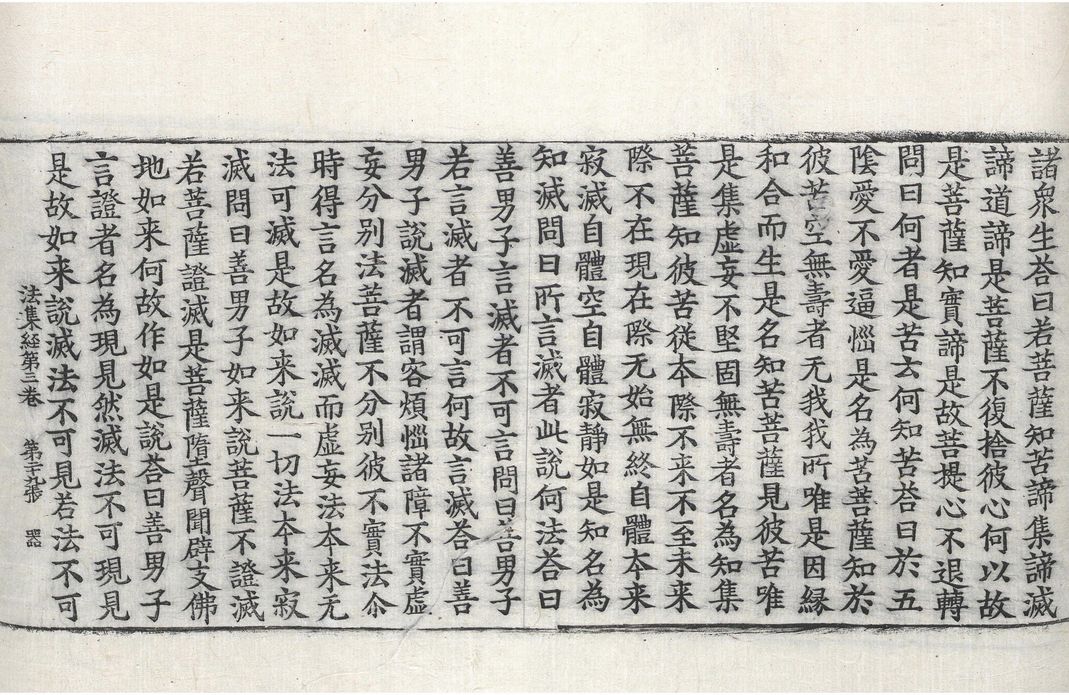 諸衆生荅曰若菩薩知苦諦集諦滅
諦道諦是菩薩不復捨彼心何以故
是菩薩知實諦是故菩提心不退轉
問曰何者是苦云何知苦荅曰於五
陰愛不愛逼惱是名為苦菩薩知於
彼苦空無壽者无我我所唯是因緣
和合而生是名知苦菩薩見彼苦唯
是集虛妄不堅固無壽者名為知集
菩薩知彼苦従本際不来不至未来
際不在現在際无始無終自體本来
寂滅自體空自體寂靜如是知名為
知滅問曰所言滅者此說何法荅曰
善男子言滅者不可言問曰善男子
若言滅者不可言何故言滅荅曰善
男子說滅者謂客煩惱諸障不實虛
妄分別法菩薩不分別彼不實法尒
時得言名為滅滅而虛妄法本来无
法可滅是故如来說一切法本来寂
滅問曰善男子如来說菩薩不證滅
若菩薩證滅是菩薩墮聲聞辟支佛
地如来何故作如是說荅曰善男子
言證者名為現見然滅法不可現見
是故如来說滅法不可見若法不可
法集経第三卷 第二十九張 器